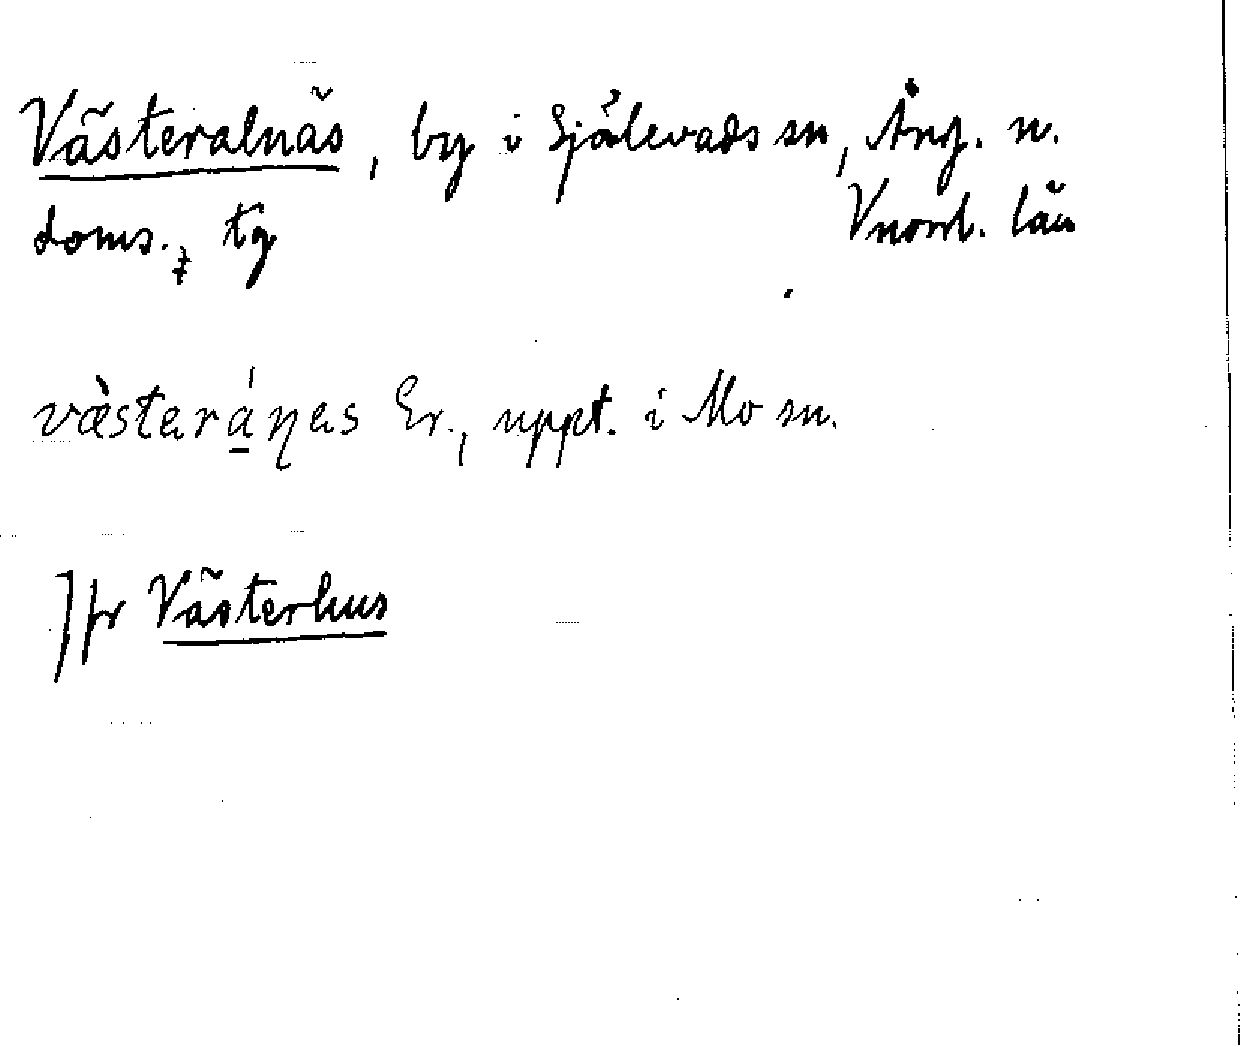 Västeralnäs, by i Själevads sn, Ång. n.
doms., tg Vnorrl. län
væ̀sterá̱n̥es Er., uppt. i Mo sn.
Jfr Västerhus